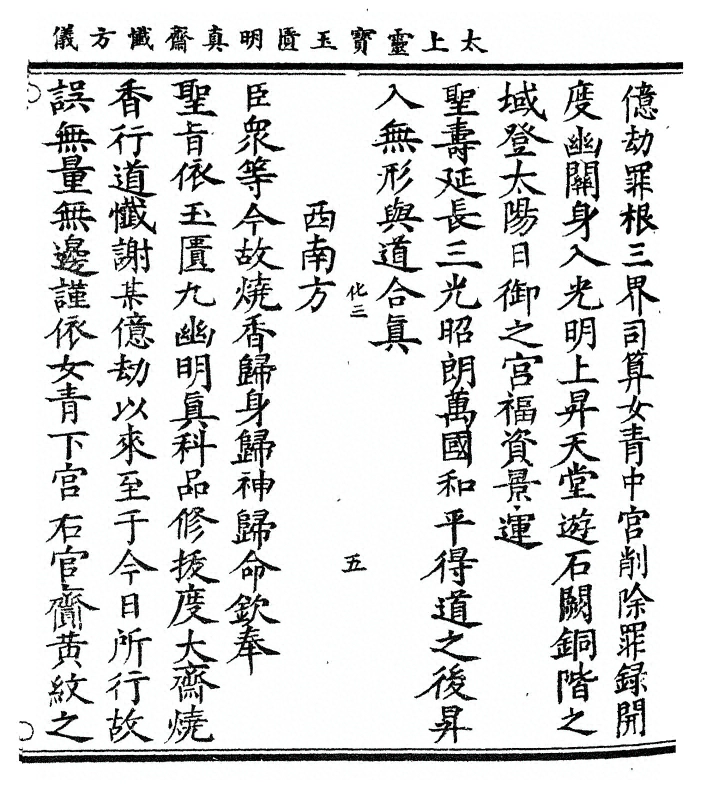 太上靈寳玉匱明真齋懺方儀
億劫罪根三界司算女青中宮削除罪録開
度幽關身入光明上昇天堂遊石闕銅階之
域登太陽日御之宮福資景運
聖壽延長三光昭朗萬國和平得道之後昇
入無形與道合眞
化三
五
西南方
臣衆等今故燒香歸身歸神歸命欽奉
聖旨依玉匱九幽明眞科品修拔度大齋燒
香行道懺謝某億劫以來至于今日所行故
誤無量無邊謹依女青下宮右官齎黄紋之